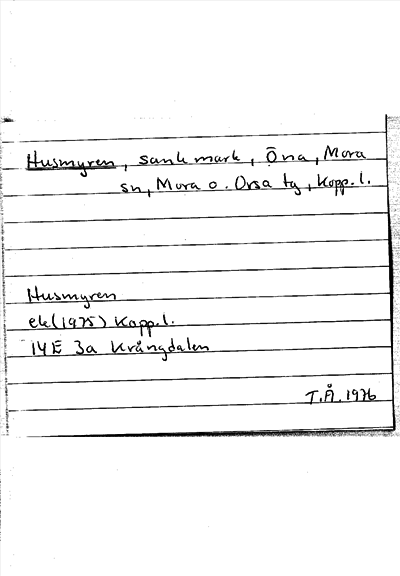 Husmyren, sank mark, Öna, Mora
sn, Mora o. Orsa tg, Kopp.l.
Husmyren
ek (1975) Kopp.l.
14E 3a Krångdalen
T.Å. 1976